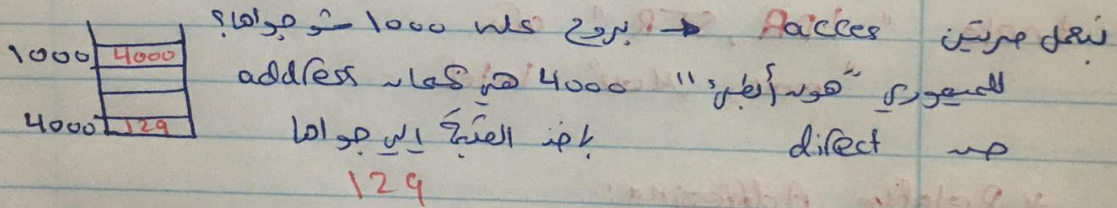 بنعمل مرتين access ← بروح على 1000 شو جواها؟
للميموري "هون أبطئ" 4000 هي كمان address
من direct باخذ القيمة الي جواها
129
1000 4000
4000 129